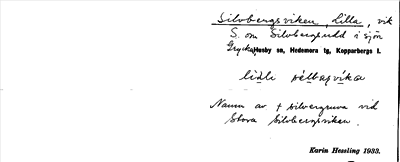 Silvbergsviken, Lilla, vik
S. om Silvbergsudd i sjön
Grycken Husby sn, Hedemora tg, Kopparbergs l.
Namn av † silvergruva vid
Stora Silvbergsviken.
Karin Hessling 1933.